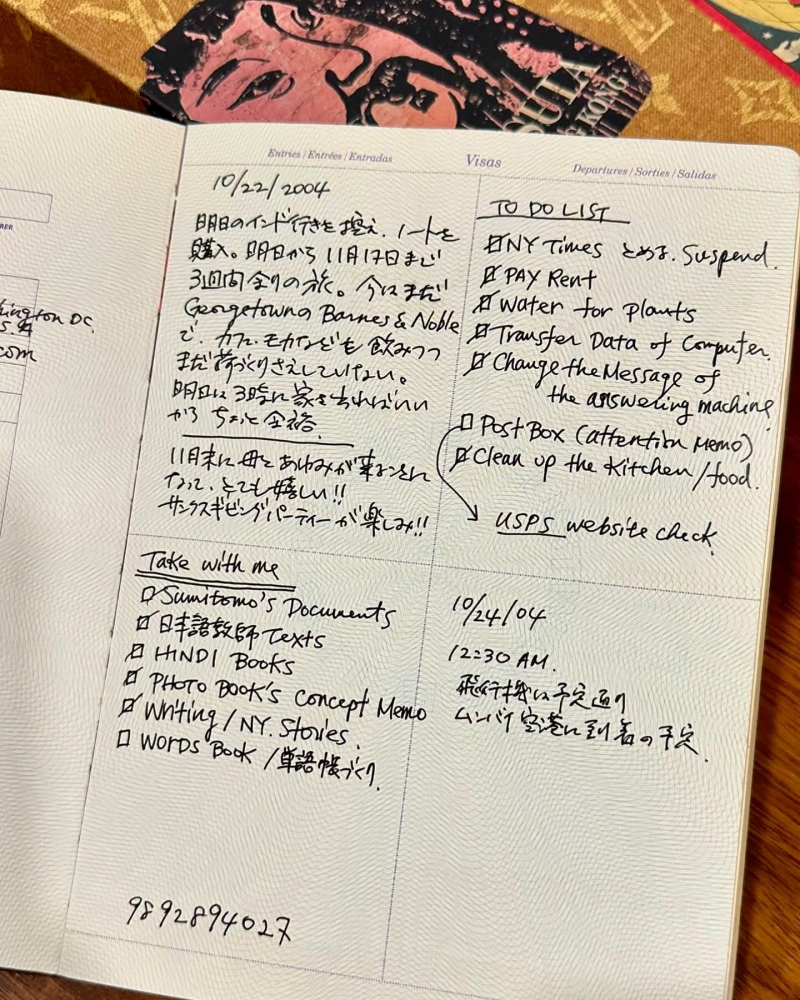 Entries / Entrées / Entradas
Visas
Departures / Sorties / Salidas
10/22/2004
明日のインド行きを控え、ノートを
購入。明日から11月17日まで
3週間余りの旅。今はまだ
GeorgetownのBarnes & Noble
で、カフェ・モカなどを飲みつつ
まだ荷づくりさえしていない。
明日は3時に家を出ればいい
から ちょっと余裕。
11月末に母とあゆみが来ることに
なって、とても嬉しい!!
サンクスギビングパーティーが楽しみ!!
TO DO LIST
☑NY Times とめる. Suspend.
☑PAY Rent
☑Water for Plants
☑Transfer Data of Computer.
☑Change the Message of
the answering machine
☐Post Box (attention Memo)
☑Clean up the Kitchen/food.
USPS website check.
Take with me
☐Sumitomo's Documents
☑日本語教師 Texts
☑HINDI Books
☑PHOTO BOOK's Concept Memo
☑Writing / NY. Stories.
☐WORDS BOOK / 単語帳づくり.
10/24/04
12:30 AM.
飛行機は予定通り
ムンバイ空港に到着の予定.
9892894027
ington DC.
com
KONG